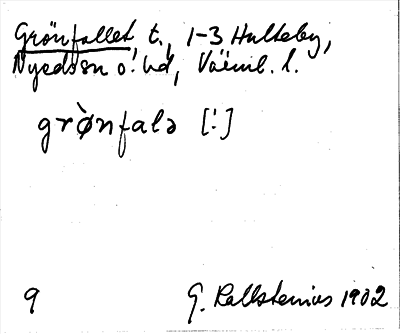 Grönfallet, t., 1-3 Hulteby,
Nyeds sn o. hd, Värml. l.
grø̀nfalə [!]
9 G. Kallstenius 1902